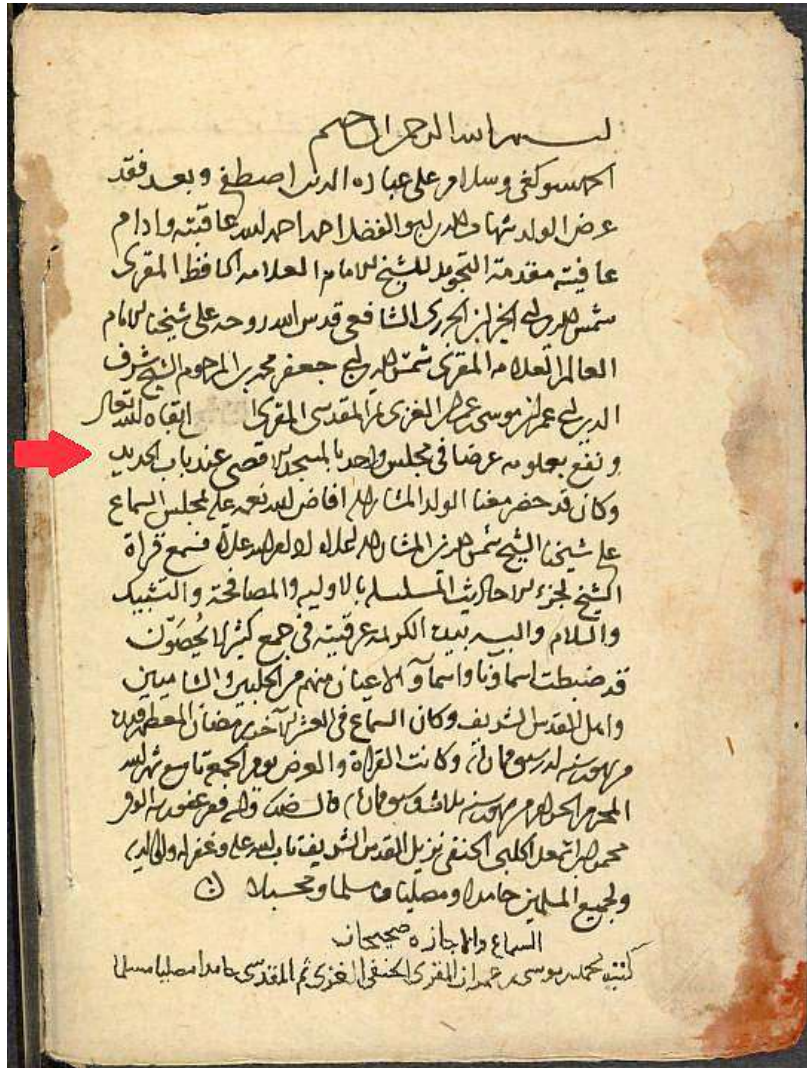 بسم الله الرحمن الرحيم
الحمد لله وكفى وسلام على عباده الذين اصطفى وبعد فقد
عرض الولد شهاب الدين ابو الفضل احمد احمد الله عاقبته وادام
عافيته مقدمة التجويد للشيخ الامام العلامه الحافظ المقرى
شمس الدين ابى الخير ابن الجزرى الشافعى قدس الله روحه على شيخنا الامام
العالم العلامه المقرى شمس الدين ابى جعفر محمد بن المرحوم الشيخ شرف
الدين ابى عمران موسى بن عمران الغزى ثم المقدسى المقرى ابقاه الله تعالى
ونفع بعلومه عرضا فى مجلس واحد بالمسجد الاقصى عند باب الحديد
وكان قد حضر معنا الولد المشار اليه افاض الله نعمه عليه مجلس السماع
على شيخنا الشيخ شمس الدين المشار اليه فسمع قراة
الشيخ لجزء الاحاديث المسلسله بالاوليه والمصافحة والتشبيك
والسلام والبسه بيده الكريمة عرقيته فى جمع كثير لا يحصون
قد ضبطت اسماونا واسمآ الاعيان منهم من الحلبيين الشاميين
واهل القدس الشريف وكان السماع فى العشر الآخر من رمضان المعظم قدره
وكانت القراة والعرض يوم الجمعة تاسع شهر الله
المحرم الحرام
الحلبى الحنفى نزيل القدس الشريف تاب الله عليه وغفر له ولوالديه
ولجميع المسلمين حامدا ومصليا ومسلما ومحسبلا
السماع والاجازة صحيحان
كتبه محمد بن موسى بن عمران المقرى الحنفى الغزى ثم المقدسى حامدا مصليا مسلما